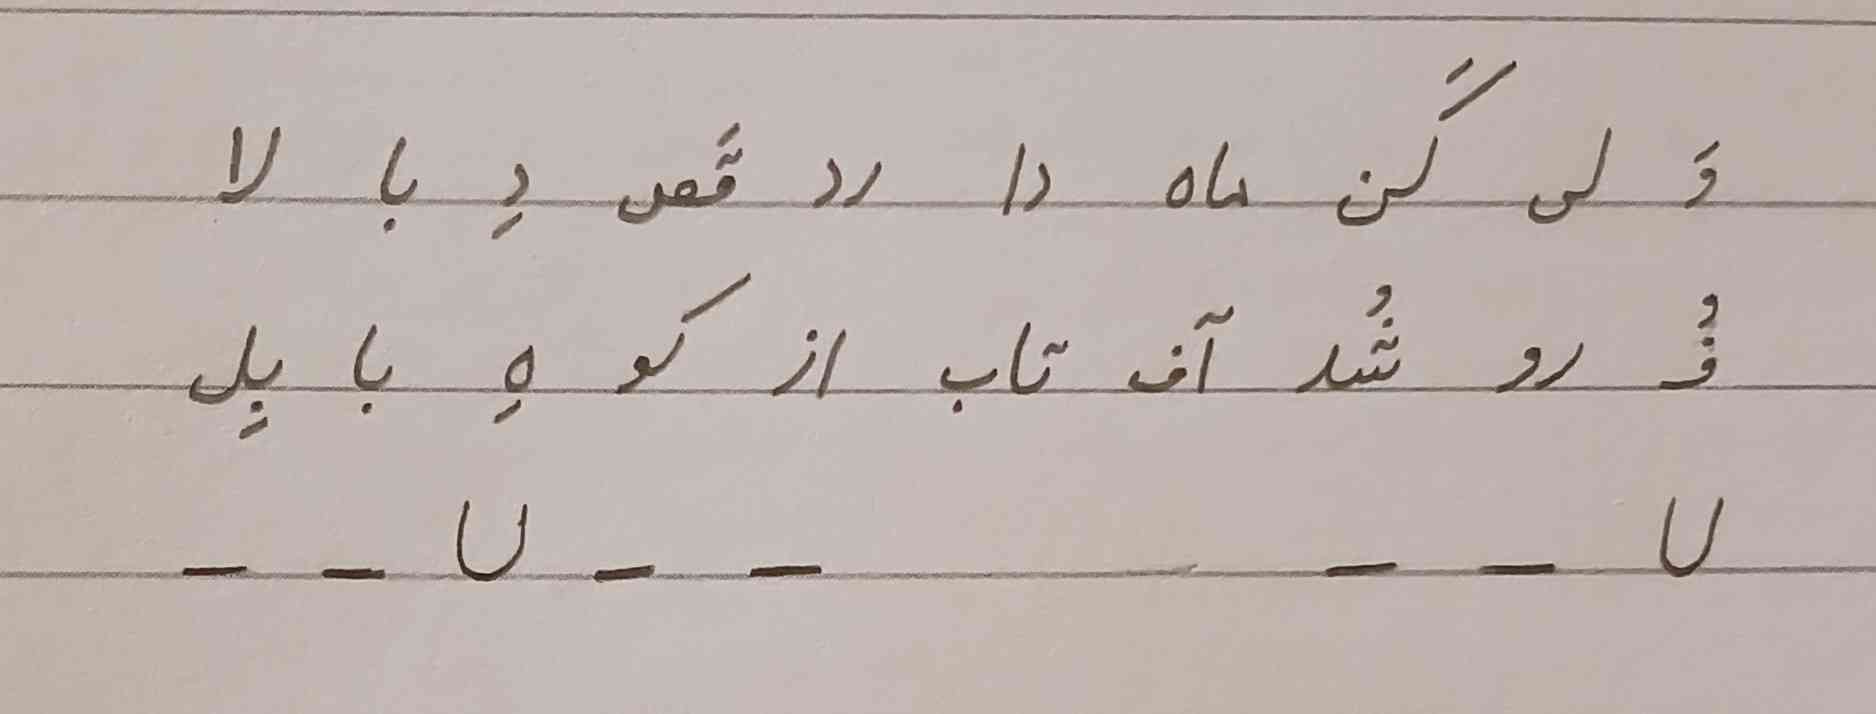 وَ لی کَن ماه دا رد قَص دِ با لا
فُ رو شُد آف تاب از کو هِ با بِل
U _ _ _ _ U _ _